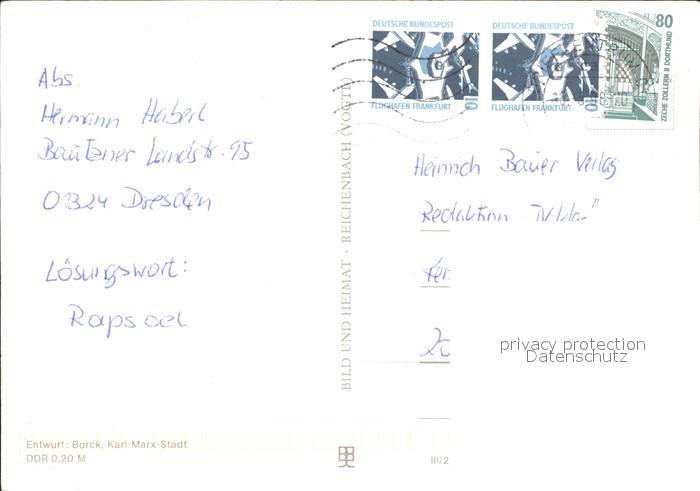 Abs.
Hermann Haberl
Bautzner Landstr. 95
01324 Dresden
Lösungswort:
Rapsoel
Entwurf: Borck, Karl-Marx-Stadt
DDR 0,20 M
BILD UND HEIMAT · REICHENBACH (VOGTL)
DEUTSCHE BUNDESPOST
FLUGHAFEN FRANKFURT
10
DEUTSCHE BUNDESPOST
FLUGHAFEN FRANKFURT
10
80
ZECHE ZOLLERN II DORTMUND
Heinrich Bauer Verlag
Redaktion
privacy protection
Datenschutz
III/2